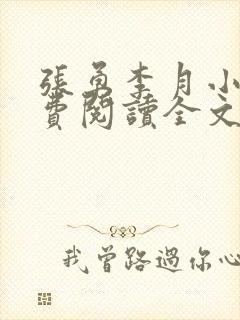 張勇李月小
費閱讀全文
我曾路過你心